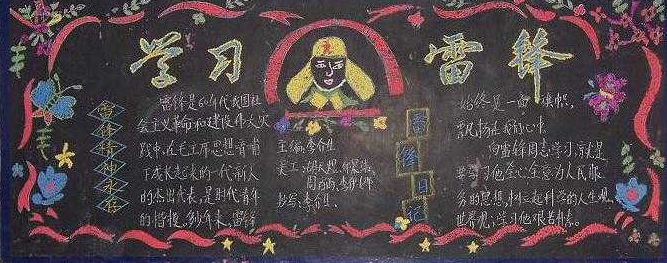 学习
雷锋
雷锋精神永存
雷锋是60年代我国社
会主义革命和建设伟大实
践中,在毛主席思想哺育
下成长起来的一代新人
的杰出代表,是时代青年
的楷模,多少年来,雷锋
主编:李合
美工:
抄写:李
雷锋日记
始终是一面旗帜,
飘扬在我们心中。
向雷锋同志学习,就是
要学习他全心全意为人民服
务的思想,树立起科学的人生观,
世界观;学习他艰苦朴素。